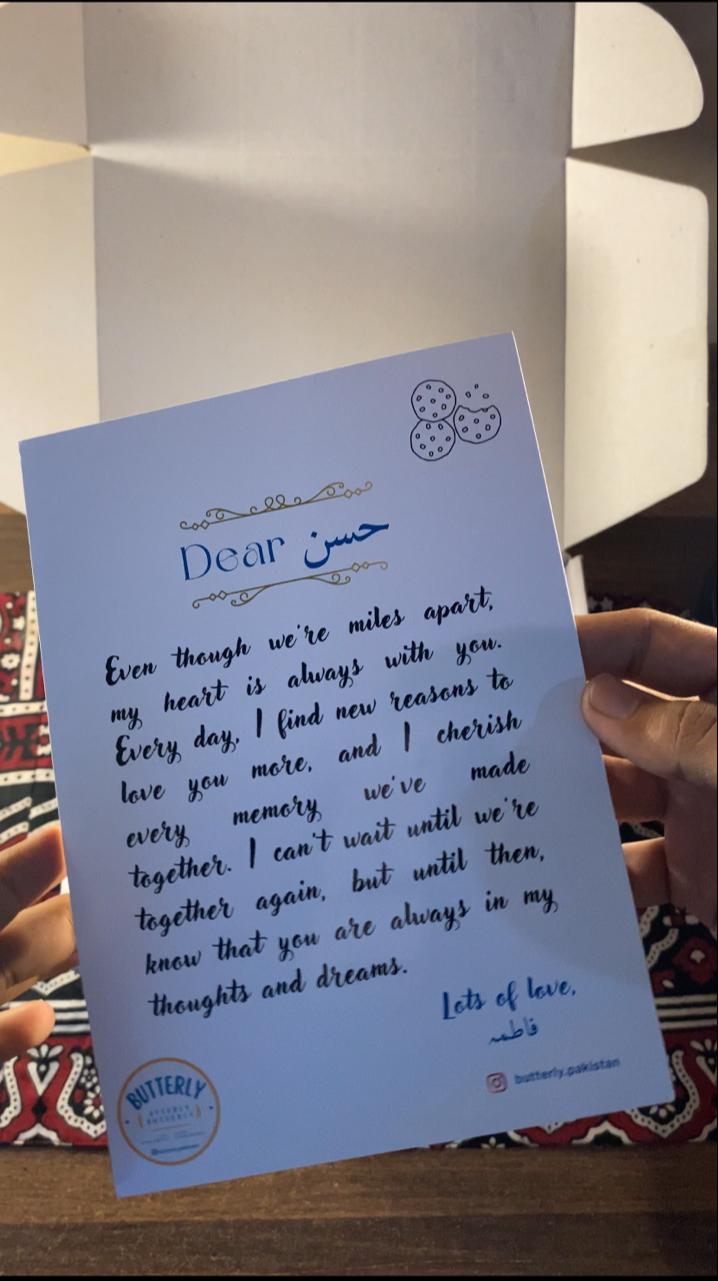 Dear حسن
Even though we're miles apart,
my heart is always with you.
Every day, I find new reasons to
love you more, and I cherish
every memory we've made
together. I can't wait until we're
together again, but until then,
know that you are always in my
thoughts and dreams.
Lots of love,
فاطمہ
butterly.pakistan
BUTTERLY